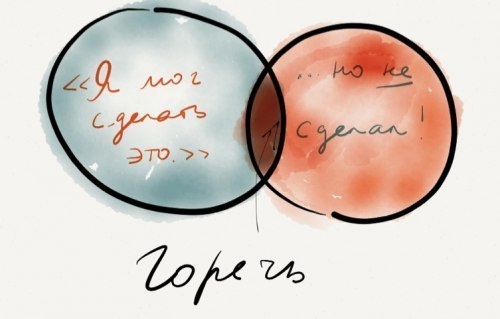 «Я мог
сделать
это.»
... но не
сделал!
Горечь